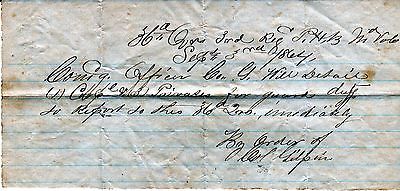 Hd Qrs 3rd Reg P. H. B. Md Vols
Sept 3rd 1864
Comdg Officer Co. G. Will Detail
(1) Corpl & Privates for guard duty
to Report to this Hd Qrs, immediately
By Order of
Col Gilpin